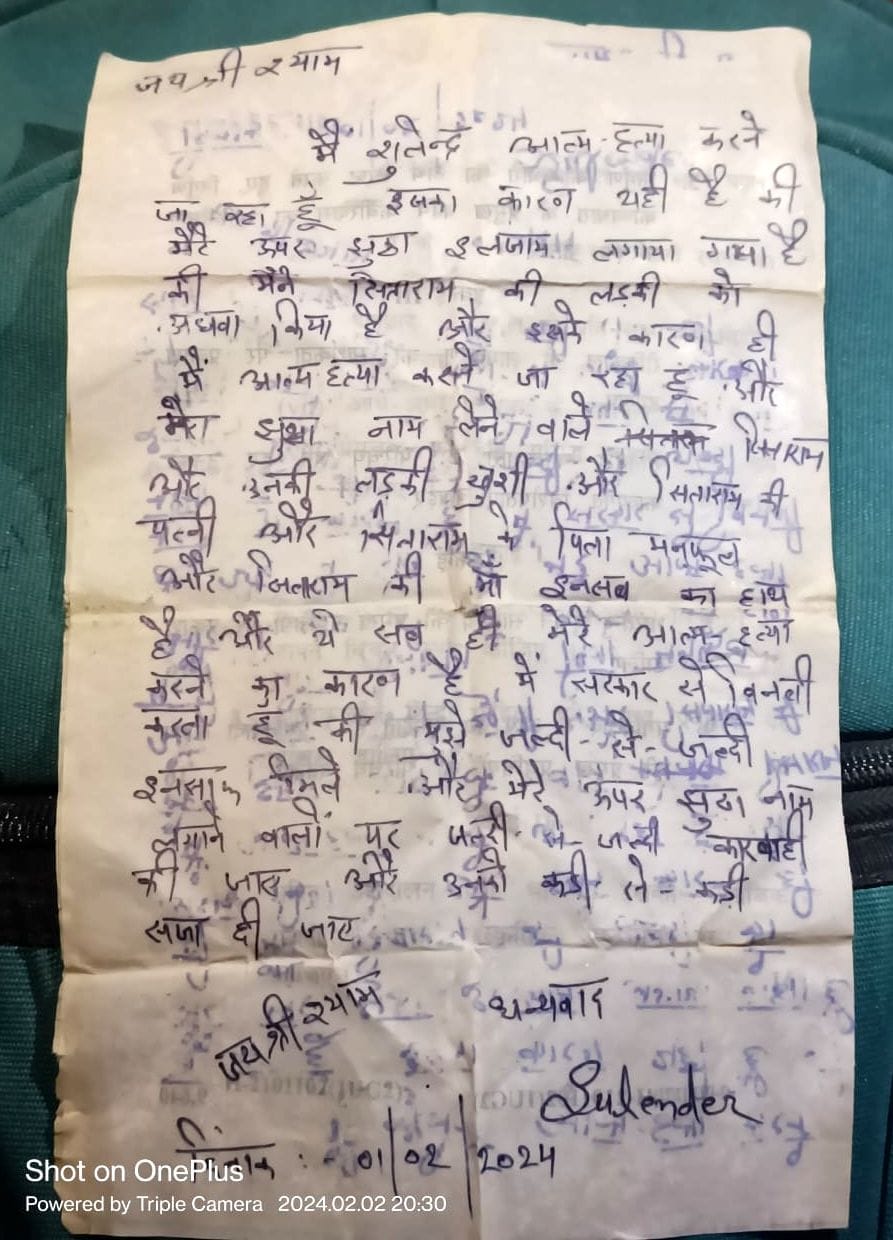 जय श्री श्याम
मै सुलेन्द्र आत्म-हत्या करने
जा रहा हूँ इसका कारण यही है की
मेरे ऊपर झुठा इलजाम लगाया गया है
की मैने सिताराम की लड़की को
अगवा किया है और इसके कारण ही
मैं आत्म हत्या करने जा रहा हूं और
मेरा झुठा नाम लेने वाले सिताराम
और उनकी लड़की खुशी और सिताराम की
पत्नी और सिताराम के पिता मनफूल
और सिताराम की माँ इनसब का हाथ
है और ये सब ही मेरे आत्म-हत्या
करने का कारण है मैं सरकार से विनती
करता हूँ की मुझे जल्दी-से-जल्दी
इनसाफ मिले और मेरे ऊपर झुठा नाम
लगाने वालों पर जल्दी-से-जल्दी कारवाही
की जाए और उनको कडी-से-कडी
सजा दी जाए
जय श्री श्याम धन्यवाद
Sulender
दिनांक :- 01/02/2024
Shot on OnePlus
Powered by Triple Camera 2024.02.02 20:30